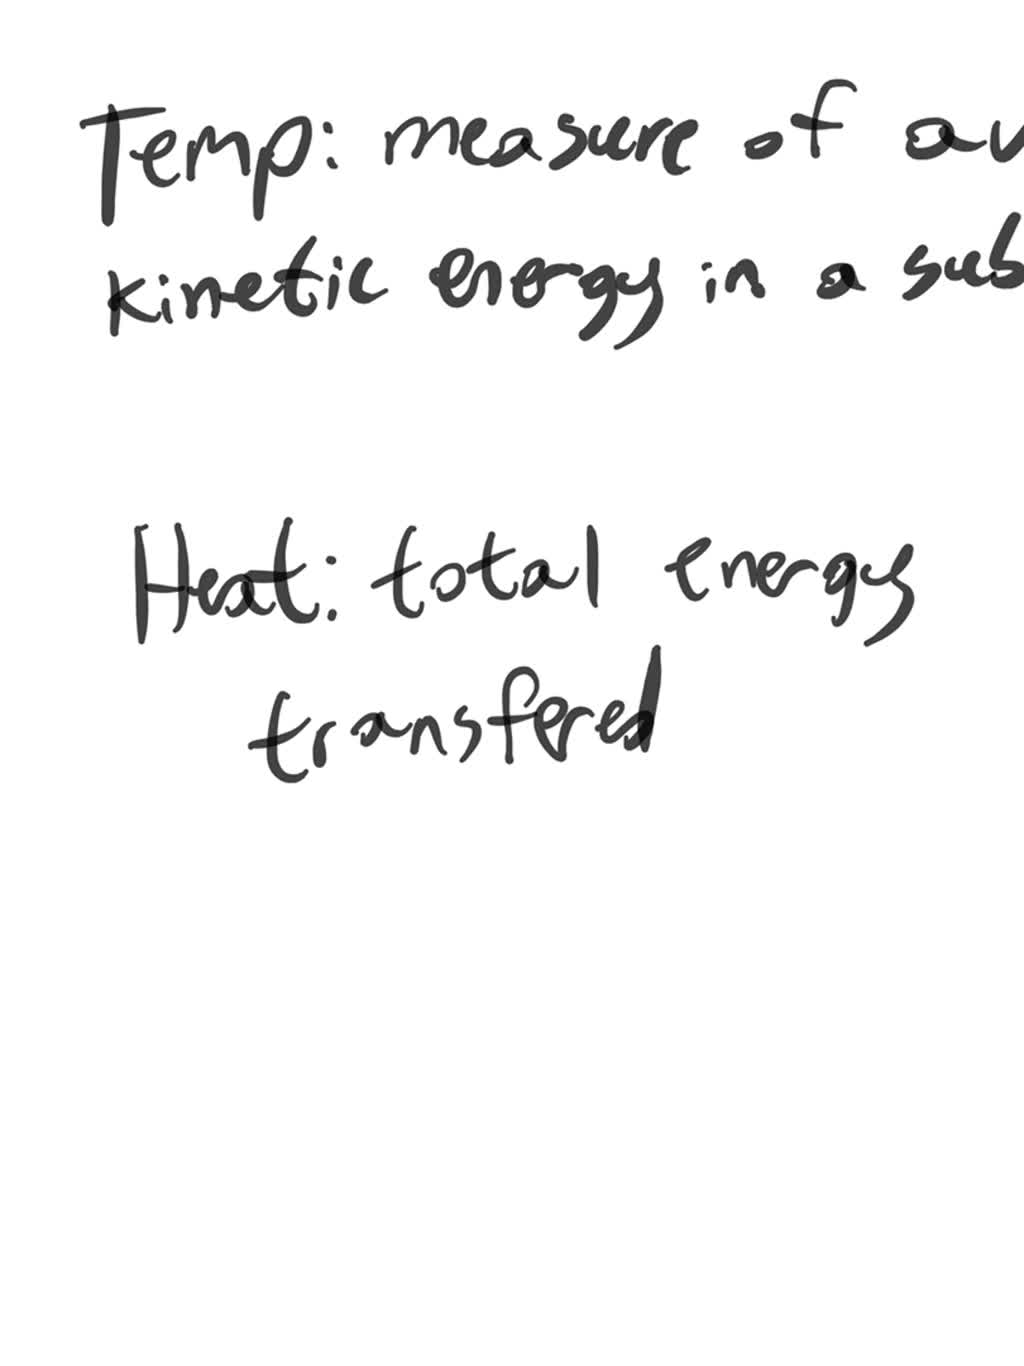 Temp: measure of av
kinetic energy in a sub
Heat: total energy
transfered